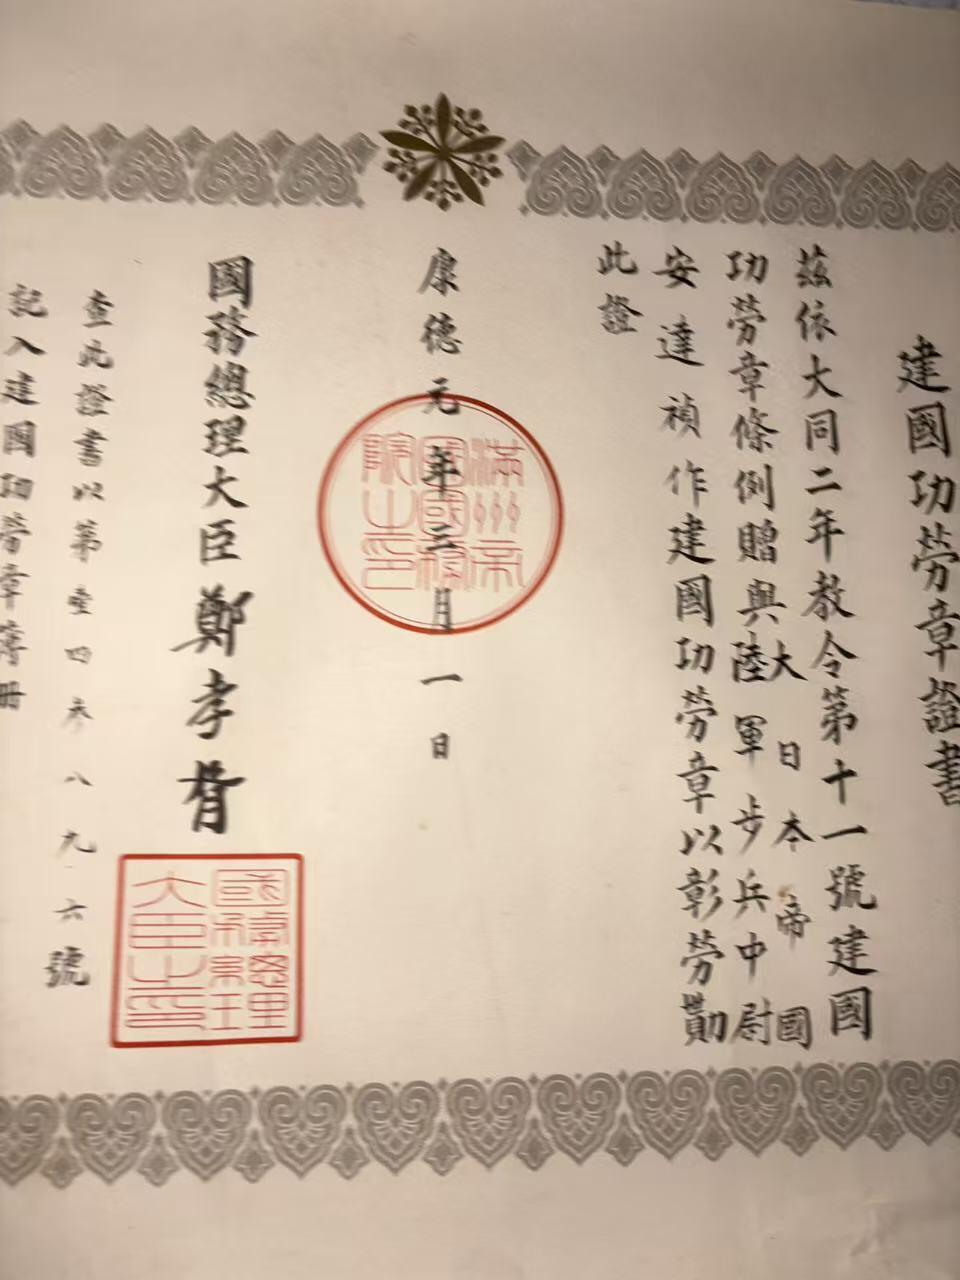 建國功勞章證書
茲依大同二年教令第十一號建國
功勞章條例贈與大日本帝國
陸軍步兵中尉
安達禎作建國功勞章以彰勞勩
此證
康德元年三月一日
滿洲帝
國國務
院之印
國務總理大臣鄭孝胥
國務總理
大臣之印
查此證書以第壹四參八九六號
記入建國功勞章簿冊